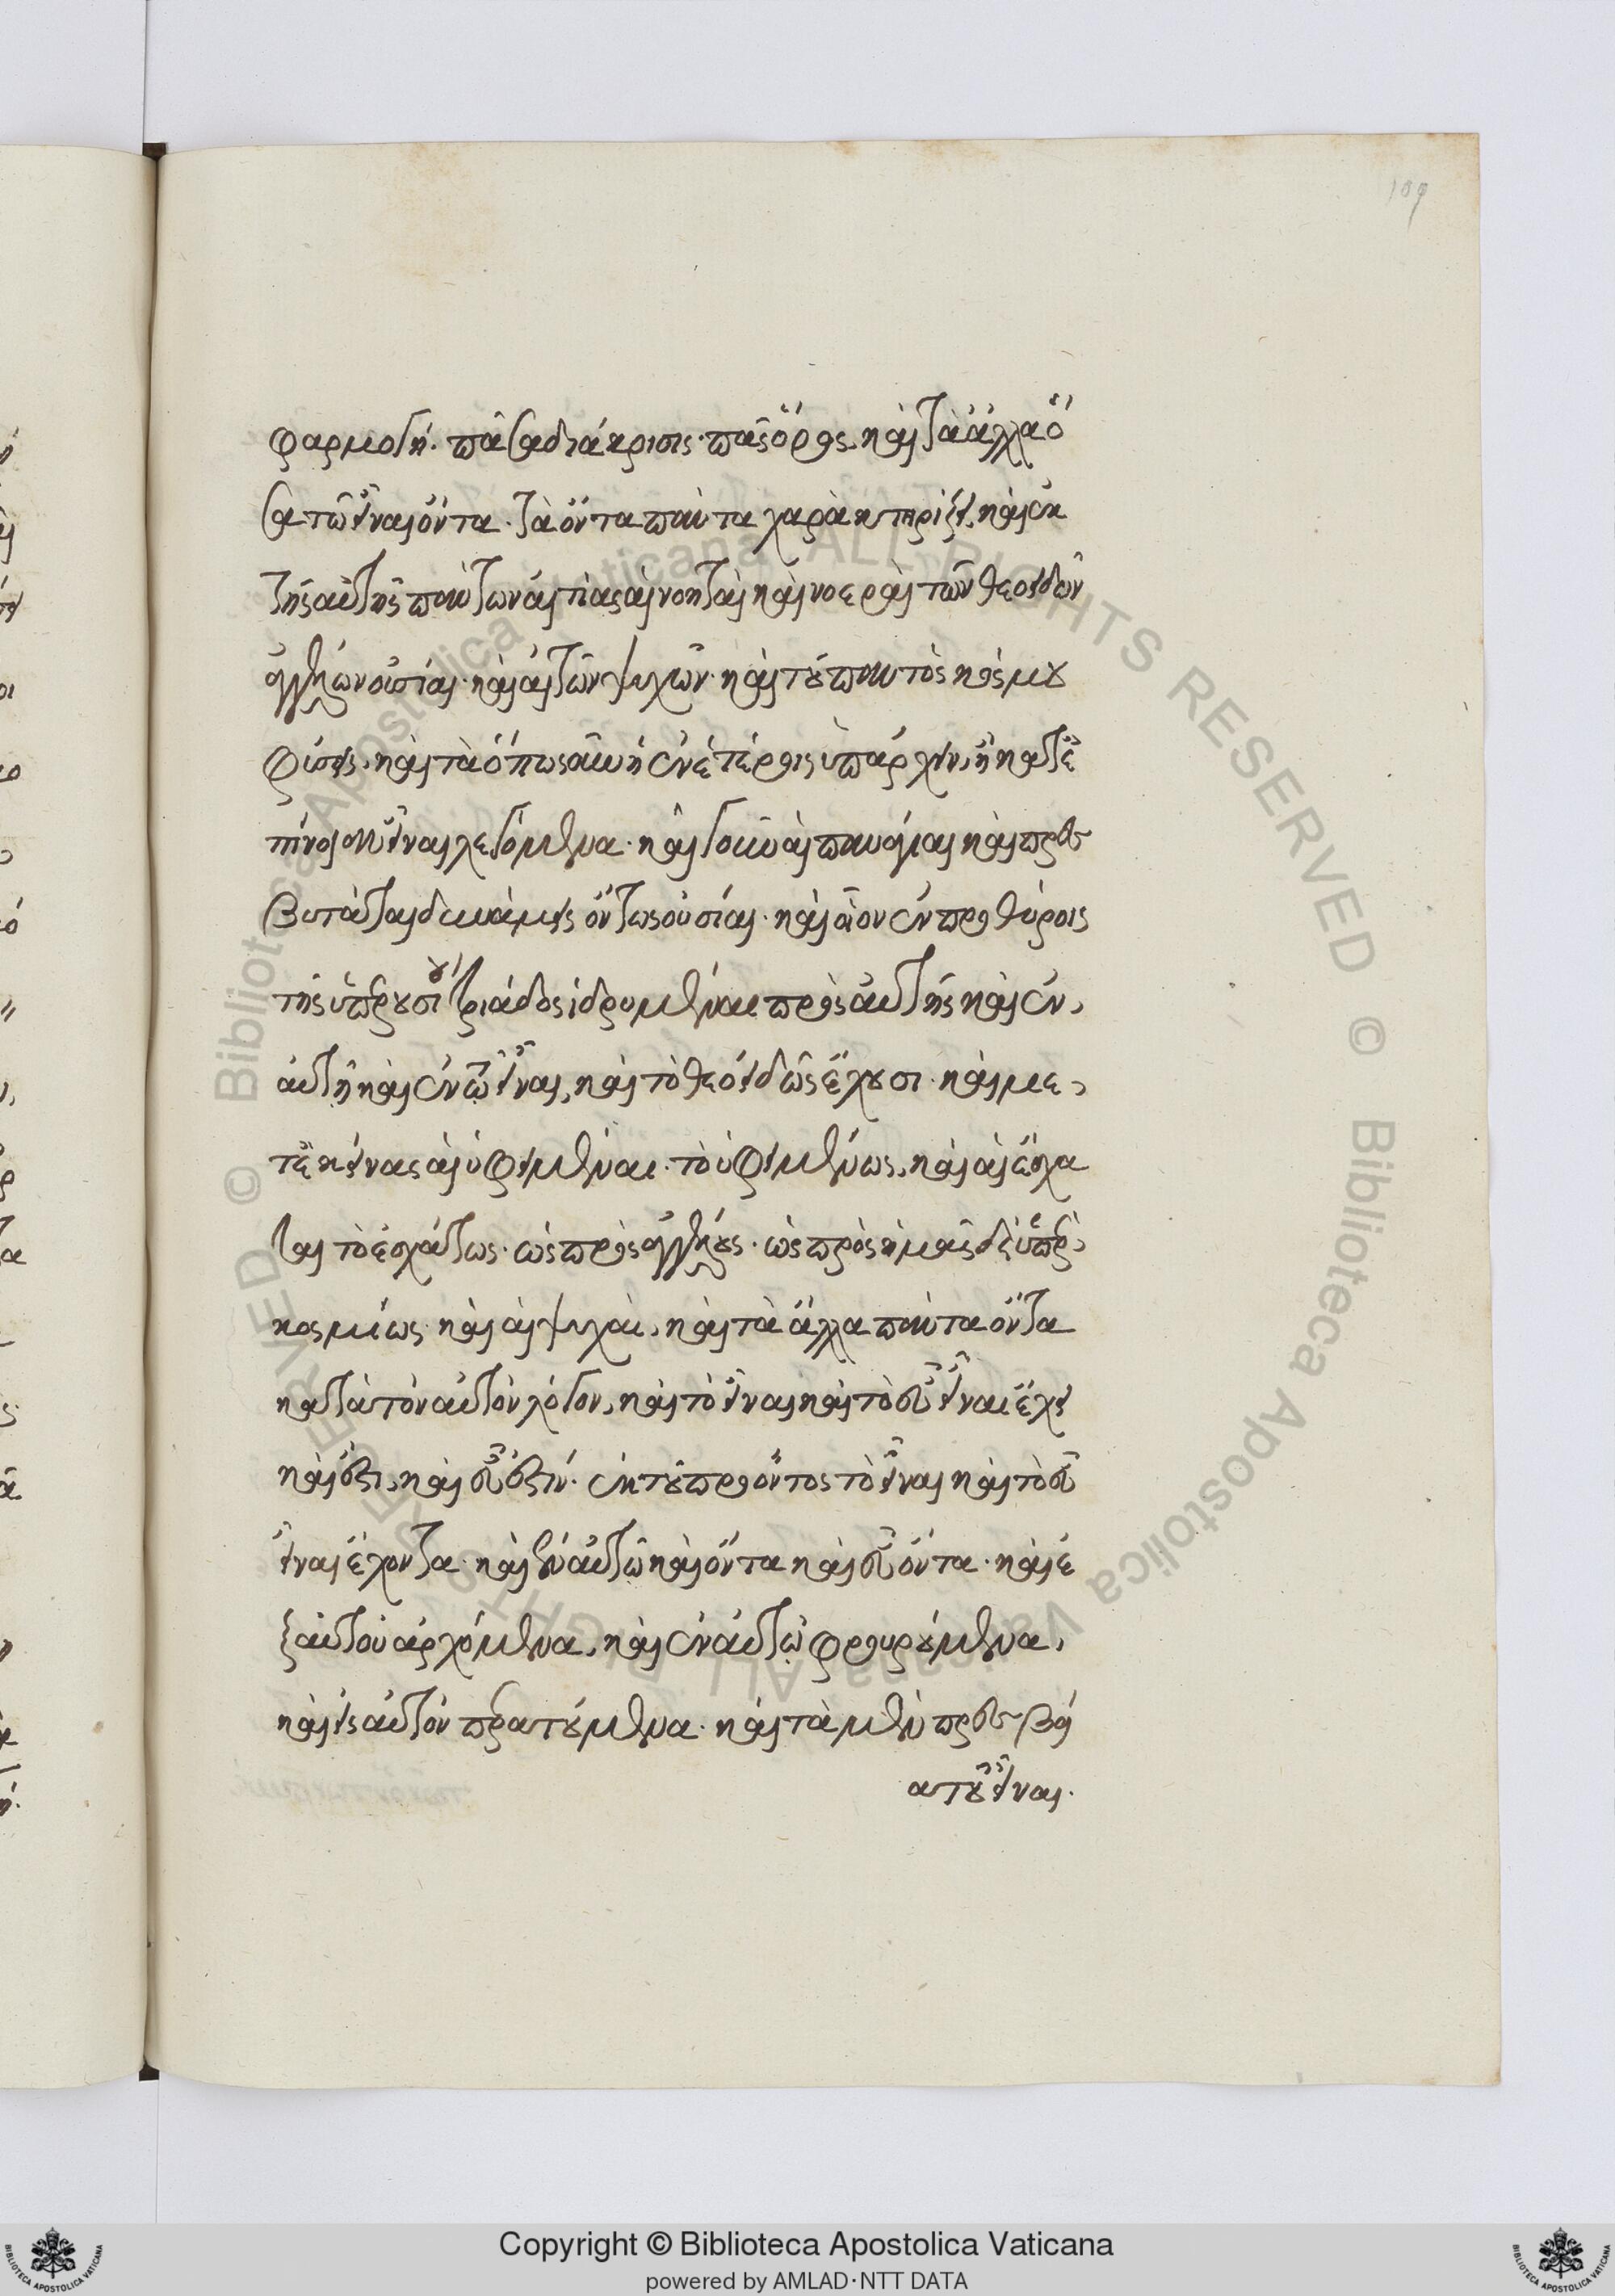 109
φαρμογή. πᾶσα διάκρισις. πᾶς ὅρος. καὶ τὰ ἄλλα ὅ
σα τῷ εἶναι ὄντα. τὰ ὄντα πάντα χαρακτηρίζει. καὶ ἐκ
τῆς αὐτῆς πάντων αἰτίας αἱ νοηταὶ καὶ νοεραὶ τῶν θεοειδῶν
ἀγγέλων οὐσίαι. καὶ αἱ τῶν ψυχῶν. καὶ τοῦ παντὸς κόσμου
φύσεις. καὶ τὰ ὅπως ἂν ἢ ἐν ἑτέροις ὑπάρχειν, ἢ κατ' ἐ
πίνοιαν εἶναι λεγόμενα. καὶ γοῦν αἱ πανάγιαι καὶ πρεσ
βύταται δυνάμεις ὄντως οὖσαι. καὶ οἷον ἐν προθύροις
τῆς ὑπερουσίου τριάδος ἱδρυμέναι πρὸς αὐτῆς καὶ ἐν
αὐτῇ καὶ ἐν ᾧ εἶναι, καὶ τὸ θεοειδῶς ἔχουσι. καὶ με
τ' ἐκείνας αἱ ὑφειμέναι. τὸ ὑφειμένως, καὶ αἱ ἔσχα
ται τὸ ἐσχάτως. ὡς πρὸς ἀγγέλους. ὡς πρὸς ἡμᾶς δὲ ὑπερ
κοσμίως. καὶ αἱ ψυχαὶ, καὶ τὰ ἄλλα πάντα ὄντα
κατὰ τὸν αὐτὸν λόγον, καὶ τὸ εἶναι καὶ τὸ εὖ εἶναι ἔχει
καὶ ἔστι, καὶ εὖ ἔστιν. ἐκ τοῦ προόντος τὸ εἶναι καὶ τὸ εὖ
εἶναι ἔχοντα. καὶ ἐν αὐτῷ καὶ ὄντα καὶ εὖ ὄντα. καὶ ἐ
ξ αὐτοῦ ἀρχόμενα, καὶ ἐν αὐτῷ φρουρούμενα,
καὶ εἰς αὐτὸν περατούμενα. καὶ τὰ μὲν πρεσβεῖ
α τοῦ εἶναι.
Copyright © Biblioteca Apostolica Vaticana
powered by AMLAD·NTT DATA